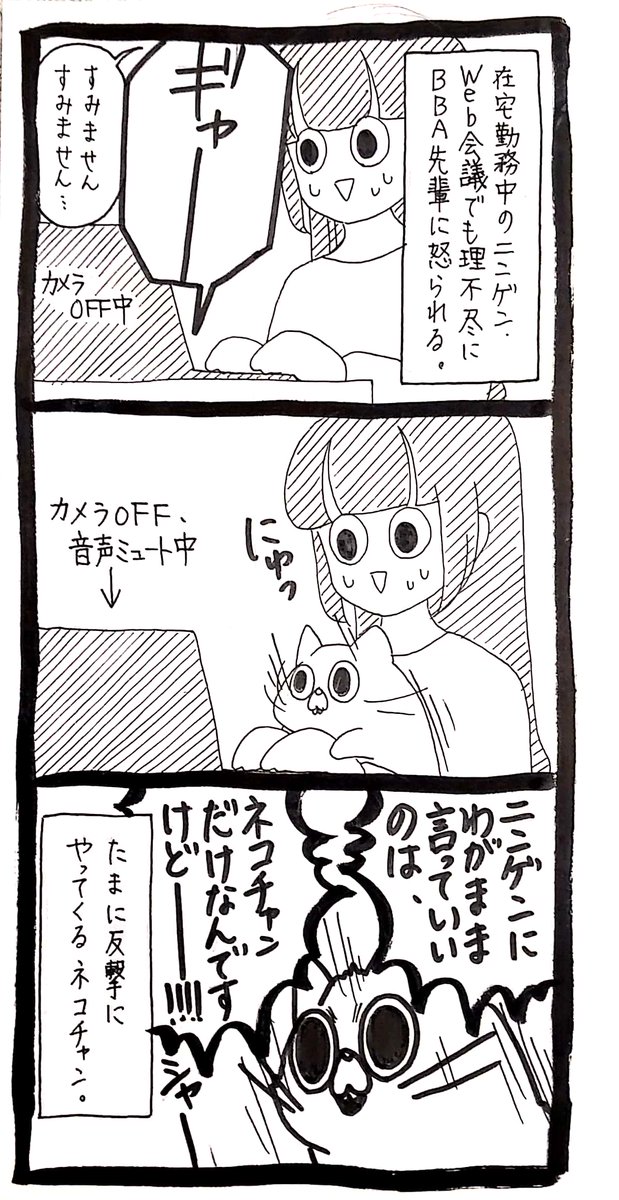 在宅勤務中のニンゲン.
Web会議でも理不尽に
BBA先輩に怒られる。
ギャー
すみません
すみません…
カメラ
OFF中
カメラOFF、
音声ミュート中
↓
にゅっ
ニンゲンに
わがまま
言っていい
のは、
ネコチャン
だけなんです
けどー!!!!
シャー
たまに反撃に
やってくるネコチャン。